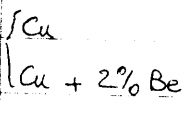 Cu
Cu + 2% Be